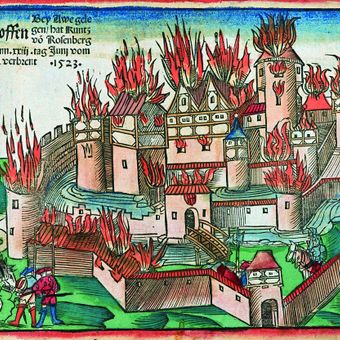 offen
Bey Awe gele
gen / hat Kuntz
vō Rosenberg
nn . xxiij . tag Junj vom
verbrent · 1523 ·